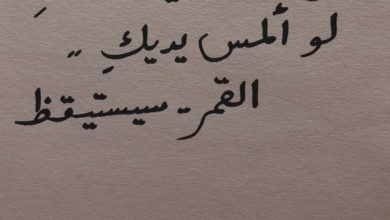 لو ألمس يديكِ „
القمر - سيستيقظ